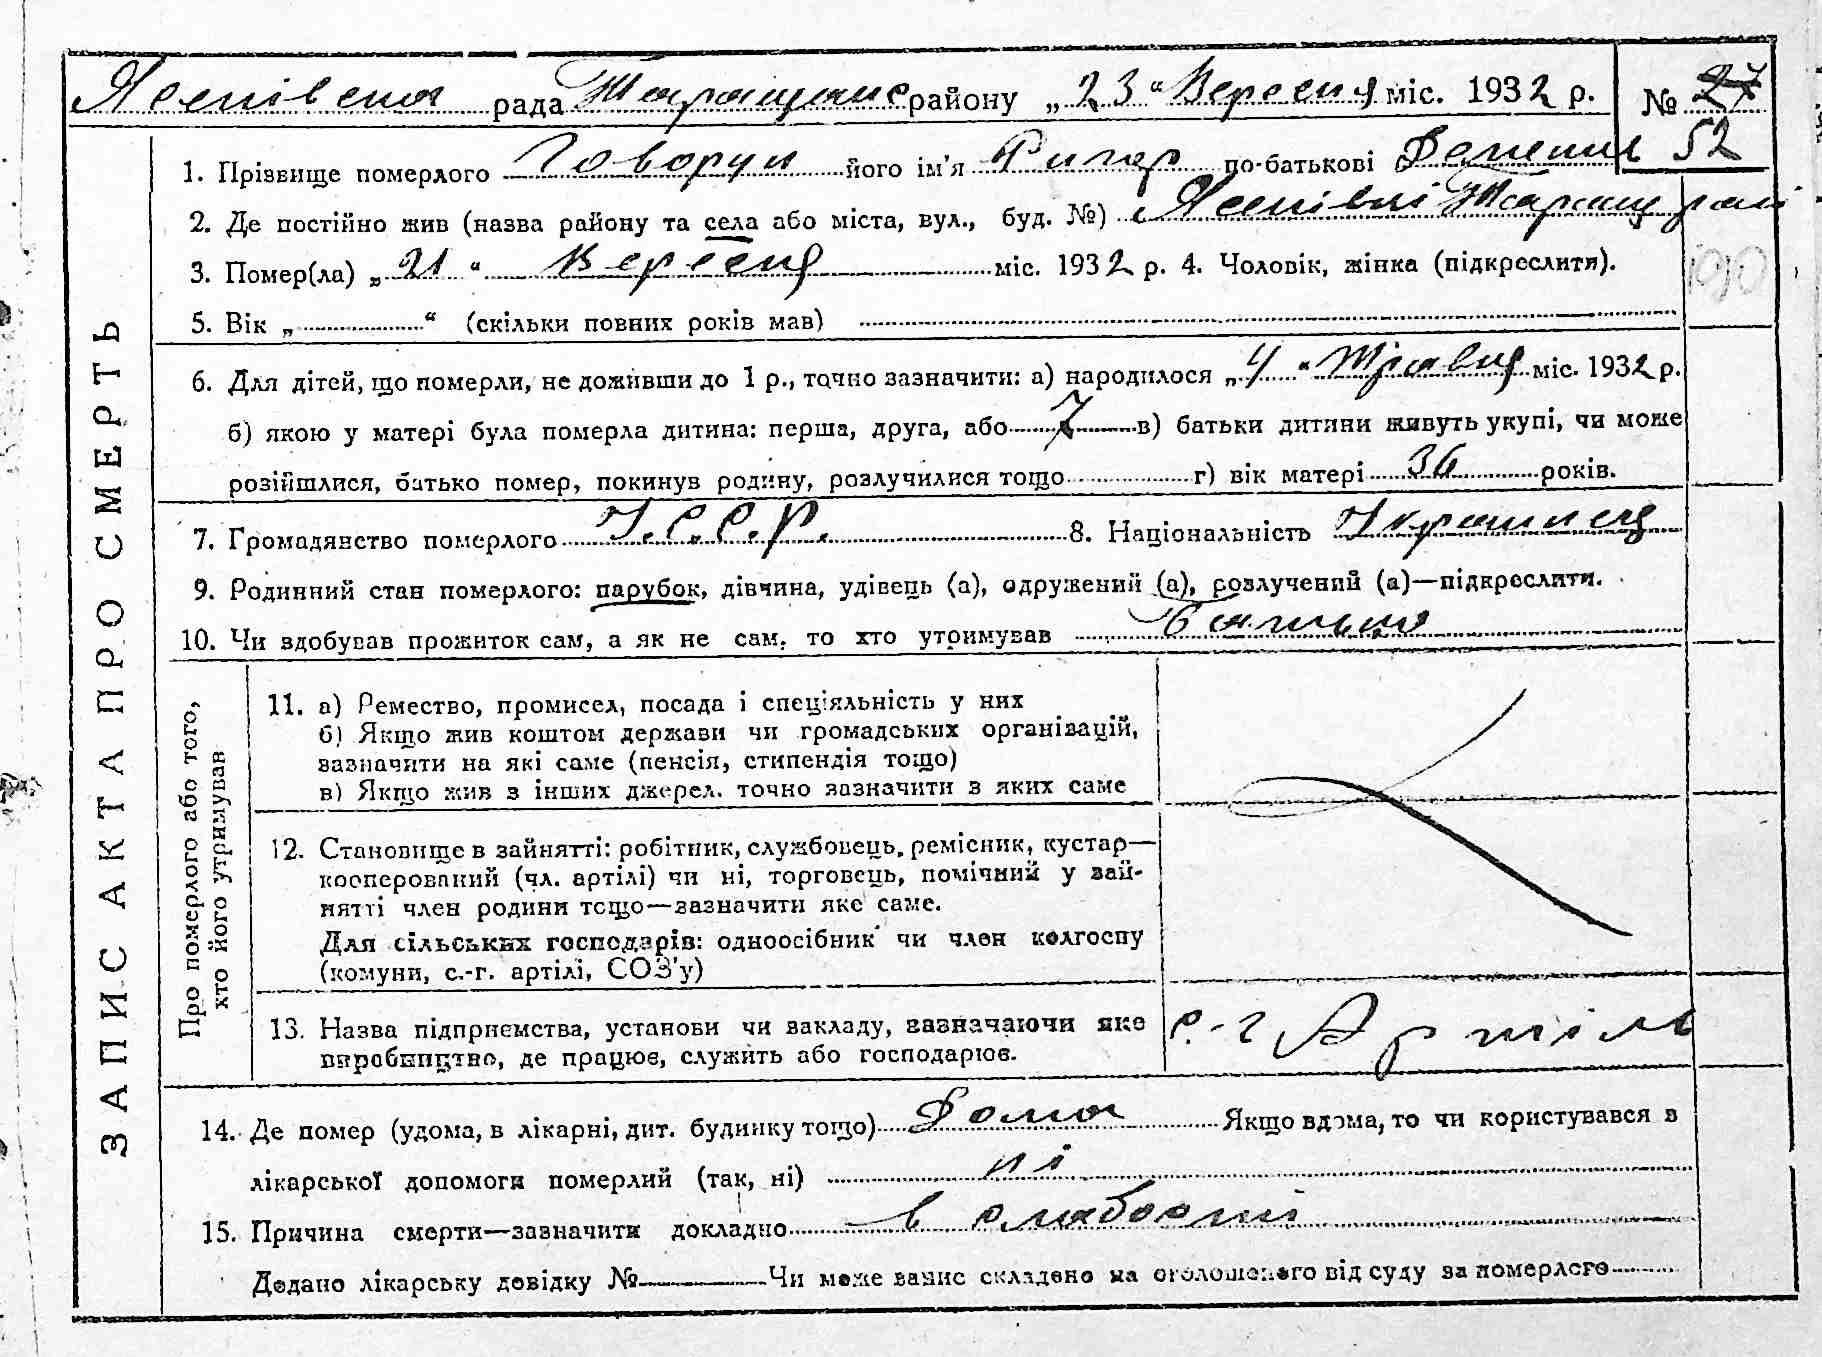 Ясенівська рада Таращанс району „23“ Вересня міс. 1932 р. № 27
52
1. Прізвище померлого Говорун його ім’я Григор по-батькові
2. Де постійно жив (назва району та села або міста, вул., буд. №) с Ясенівці Таращ рай
3. Помер(ла) „21“ Вересня міс. 1932 р. 4. Чоловік, жінка (підкреслити).
5. Вік „ “ (скільки повних років мав)
6. Для дітей, що померли, не доживши до 1 р., точно зазначити: а) народилося „4“ Травня міс. 1932 р.
б) якою у матері була померла дитина: перша, друга, або 7 в) батьки дитини живуть укупі, чи може
розійшлися, батько помер, покинув родину, розлучилися тощо г) вік матері 36 років.
7. Громадянство померлого У.С.С.Р. 8. Національність Украинец
9. Родинний стан померлого: парубок, дівчина, удівець (а), одружений (а), розлучений (а)—підкреслити.
10. Чи здобував прожиток сам, а як не сам, то хто утримував Батько
ЗАПИС АКТА ПРО СМЕРТЬ
Про померлого або того,
хто його утримував
11. а) Ремество, промисел, посада і спеціяльність у них
б) Якщо жив коштом держави чи громадських організацій,
зазначити на які саме (пенсія, стипендія тощо)
в) Якщо жив з інших джерел, точно зазначити з яких саме
12. Становище в зайнятті: робітник, службовець, ремісник, кустар—
кооперований (чл. артілі) чи ні, торговець, помічний у зай-
нятті член родини тощо—зазначити яке саме.
Для сільських господарів: одноосібник чи член колгоспу
(комуни, с.-г. артілі, СОЗ’у)
13. Назва підприємства, установи чи закладу, зазначаючи яке
виробництво, де працює, служить або господарює.
с.-г Артіль
14. Де помер (удома, в лікарні, дит. будинку тощо) Дома Якщо вдома, то чи користувався в
лікарської допомоги померлий (так, ні) ні
15. Причина смерти—зазначити докладно в слабости
Додано лікарську довідку № Чи може запис складено на оголошеного від суду за померлого